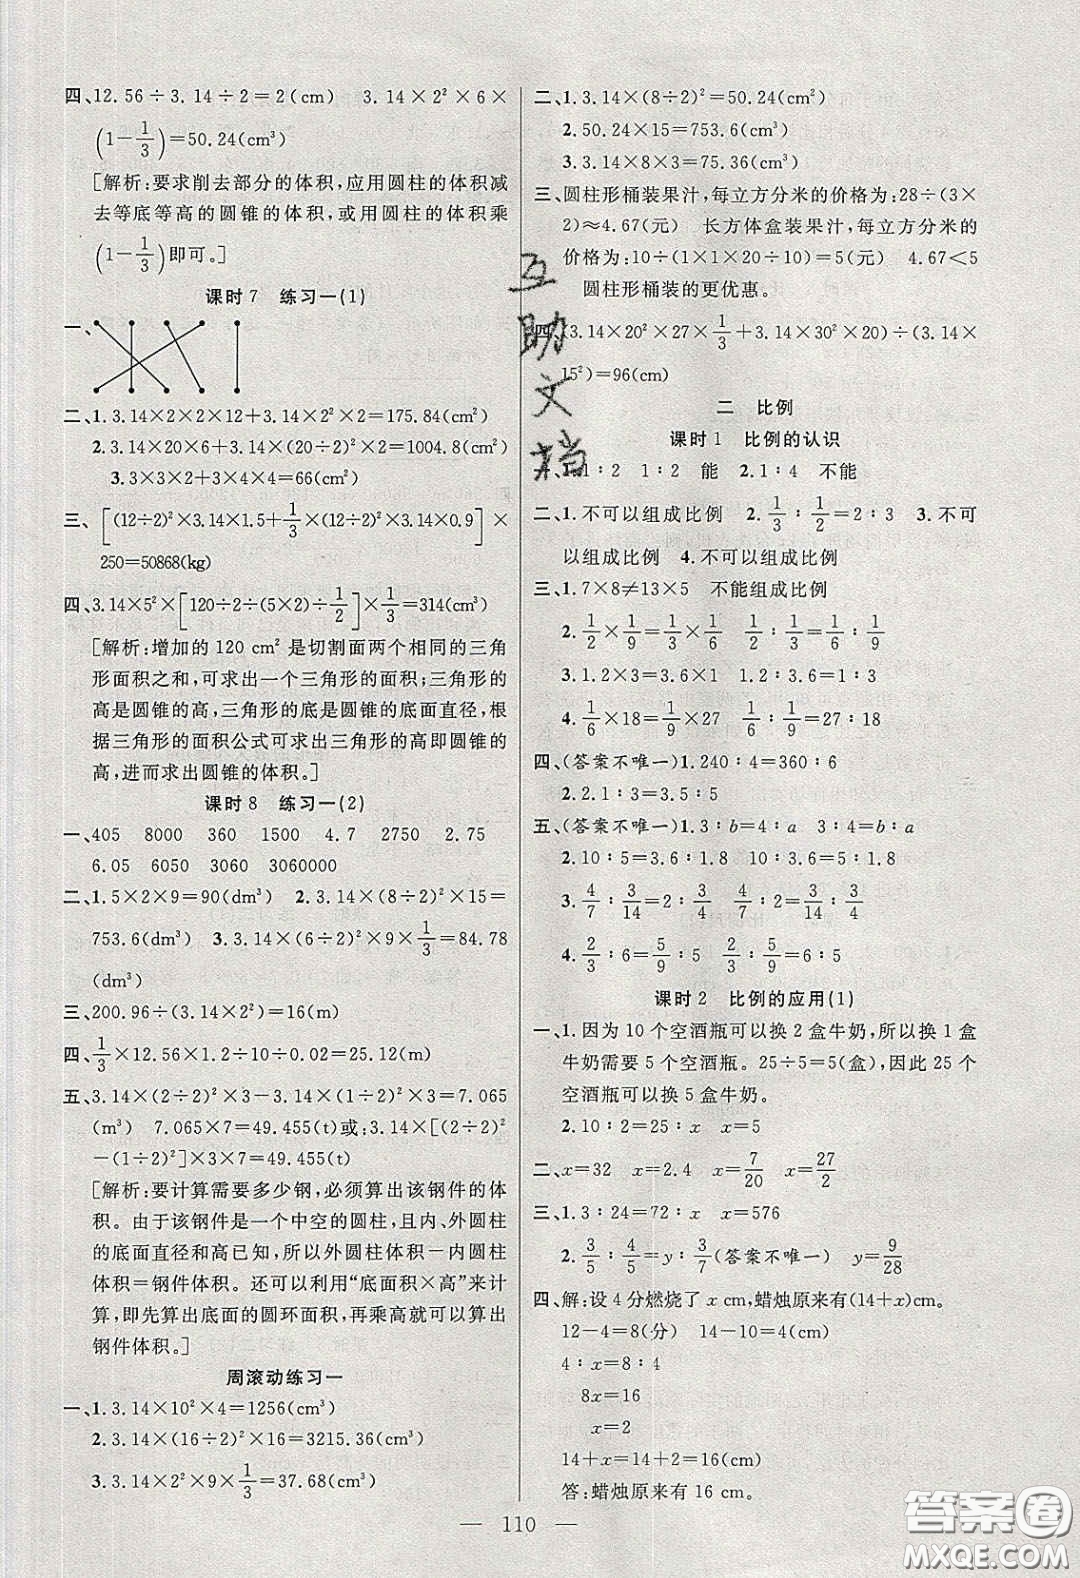 四、12.56÷3.14÷2=2(cm)　3.14×2²×6×
(1−1/3)=50.24(cm³)
[解析:要求削去部分的体积,应用圆柱的体积减
去等底等高的圆锥的体积,或用圆柱的体积乘
(1−1/3)即可。]
课时 7　练习一(1)
一、
二、1.3.14×2×2×12+3.14×2²=175.84(cm²)
2.3.14×20×6+3.14×(20÷2)²×2=1004.8(cm²)
3.3×3×2+3×4×4=66(cm²)
三、[(12÷2)²×3.14×1.5+1/3×(12÷2)²×3.14×0.9]×
250=50868(kg)
四、3.14×5²×[120÷2÷(5×2)÷1/2]×1/3=314(cm³)
[解析:增加的 120 cm² 是切割面两个相同的三角
形面积之和,可求出一个三角形的面积;三角形的
高是圆锥的高,三角形的底是圆锥的底面直径,根
据三角形的面积公式可求出三角形的高即圆锥的
高,进而求出圆锥的体积。]
课时 8　练习一(2)
一、405　8000　360　1500　4.7　2750　2.75
6.05　6050　3060　3060000
二、1.5×2×9=90(dm³)　2.3.14×(8÷2)²×15=
753.6(dm³)　3.3.14×(6÷2)²×9×1/3=84.78
(dm³)
三、200.96÷(3.14×2²)=16(m)
四、1/3×12.56×1.2÷10÷0.02=25.12(m)
五、3.14×(2÷2)²×3−3.14×(1÷2)²×3=7.065
(m³)　7.065×7=49.455(t)或:3.14×[(2÷2)²
−(1÷2)²]×3×7=49.455(t)
[解析:要计算需要多少钢,必须算出该钢件的体
积。由于该钢件是一个中空的圆柱,且内、外圆柱
的底面直径和高已知,所以外圆柱体积−内圆柱
体积=钢件体积。还可以利用“底面积×高”来计
算,即先算出底面的圆环面积,再乘高就可以算出
钢件体积。]
周滚动练习一
一、1.3.14×10²×4=1256(cm³)
2.3.14×(16÷2)²×16=3215.36(cm³)
3.3.14×2²×9×1/3=37.68(cm³)
二、1.3.14×(8÷2)²=50.24(cm²)
2.50.24×15=753.6(cm³)
3.3.14×8×3=75.36(cm²)
三、圆柱形桶装果汁,每立方分米的价格为:28÷(3×
2)≈4.67(元)　长方体盒装果汁,每立方分米的
价格为:10÷(1×1×20÷10)=5(元)　4.67<5
圆柱形桶装的更优惠。
四、(3.14×20²×27×1/3+3.14×30²×20)÷(3.14×
15²)=96(cm)
二　比例
课时 1　比例的认识
1∶2　1∶2　能　2.1∶4　不能
二、1.不可以组成比例　2.1/3∶1/2=2∶3　3.不可
以组成比例　4.不可以组成比例
三、1.7×8≠13×5　不能组成比例
2.1/2×1/9=1/3×1/6　1/2∶1/3=1/6∶1/9
3.1.2×3=3.6×1　1.2∶3.6=1∶3
4.1/6×18=1/9×27　1/6∶1/9=27∶18
四、(答案不唯一)1.240∶4=360∶6
2.2.1∶3=3.5∶5
五、(答案不唯一)1.3∶b=4∶a　3∶4=b∶a
2.10∶5=3.6∶1.8　10∶3.6=5∶1.8
3.4/7∶3/14=2∶3/4　4/7∶2=3/14∶3/4
4.2/3∶6=5/9∶5　2/3∶5/9=6∶5
课时 2　比例的应用(1)
一、1.因为 10 个空酒瓶可以换 2 盒牛奶,所以换 1 盒
牛奶需要 5 个空酒瓶。25÷5=5(盒),因此 25 个
空酒瓶可以换 5 盒牛奶。
2.10∶2=25∶x　x=5
二、x=32　x=2.4　x=7/20　x=27/2
三、1.3∶24=72∶x　x=576
2.3/5∶4/5=y∶3/7(答案不唯一)　y=9/28
四、解:设 4 分燃烧了 x cm,蜡烛原来有(14+x)cm。
12−4=8(分)　14−10=4(cm)
4∶x=8∶4
8x=16
x=2
14+x=14+2=16(cm)
答:蜡烛原来有 16 cm。
— 110 —
互助文档
答案圈
MXQE.COM